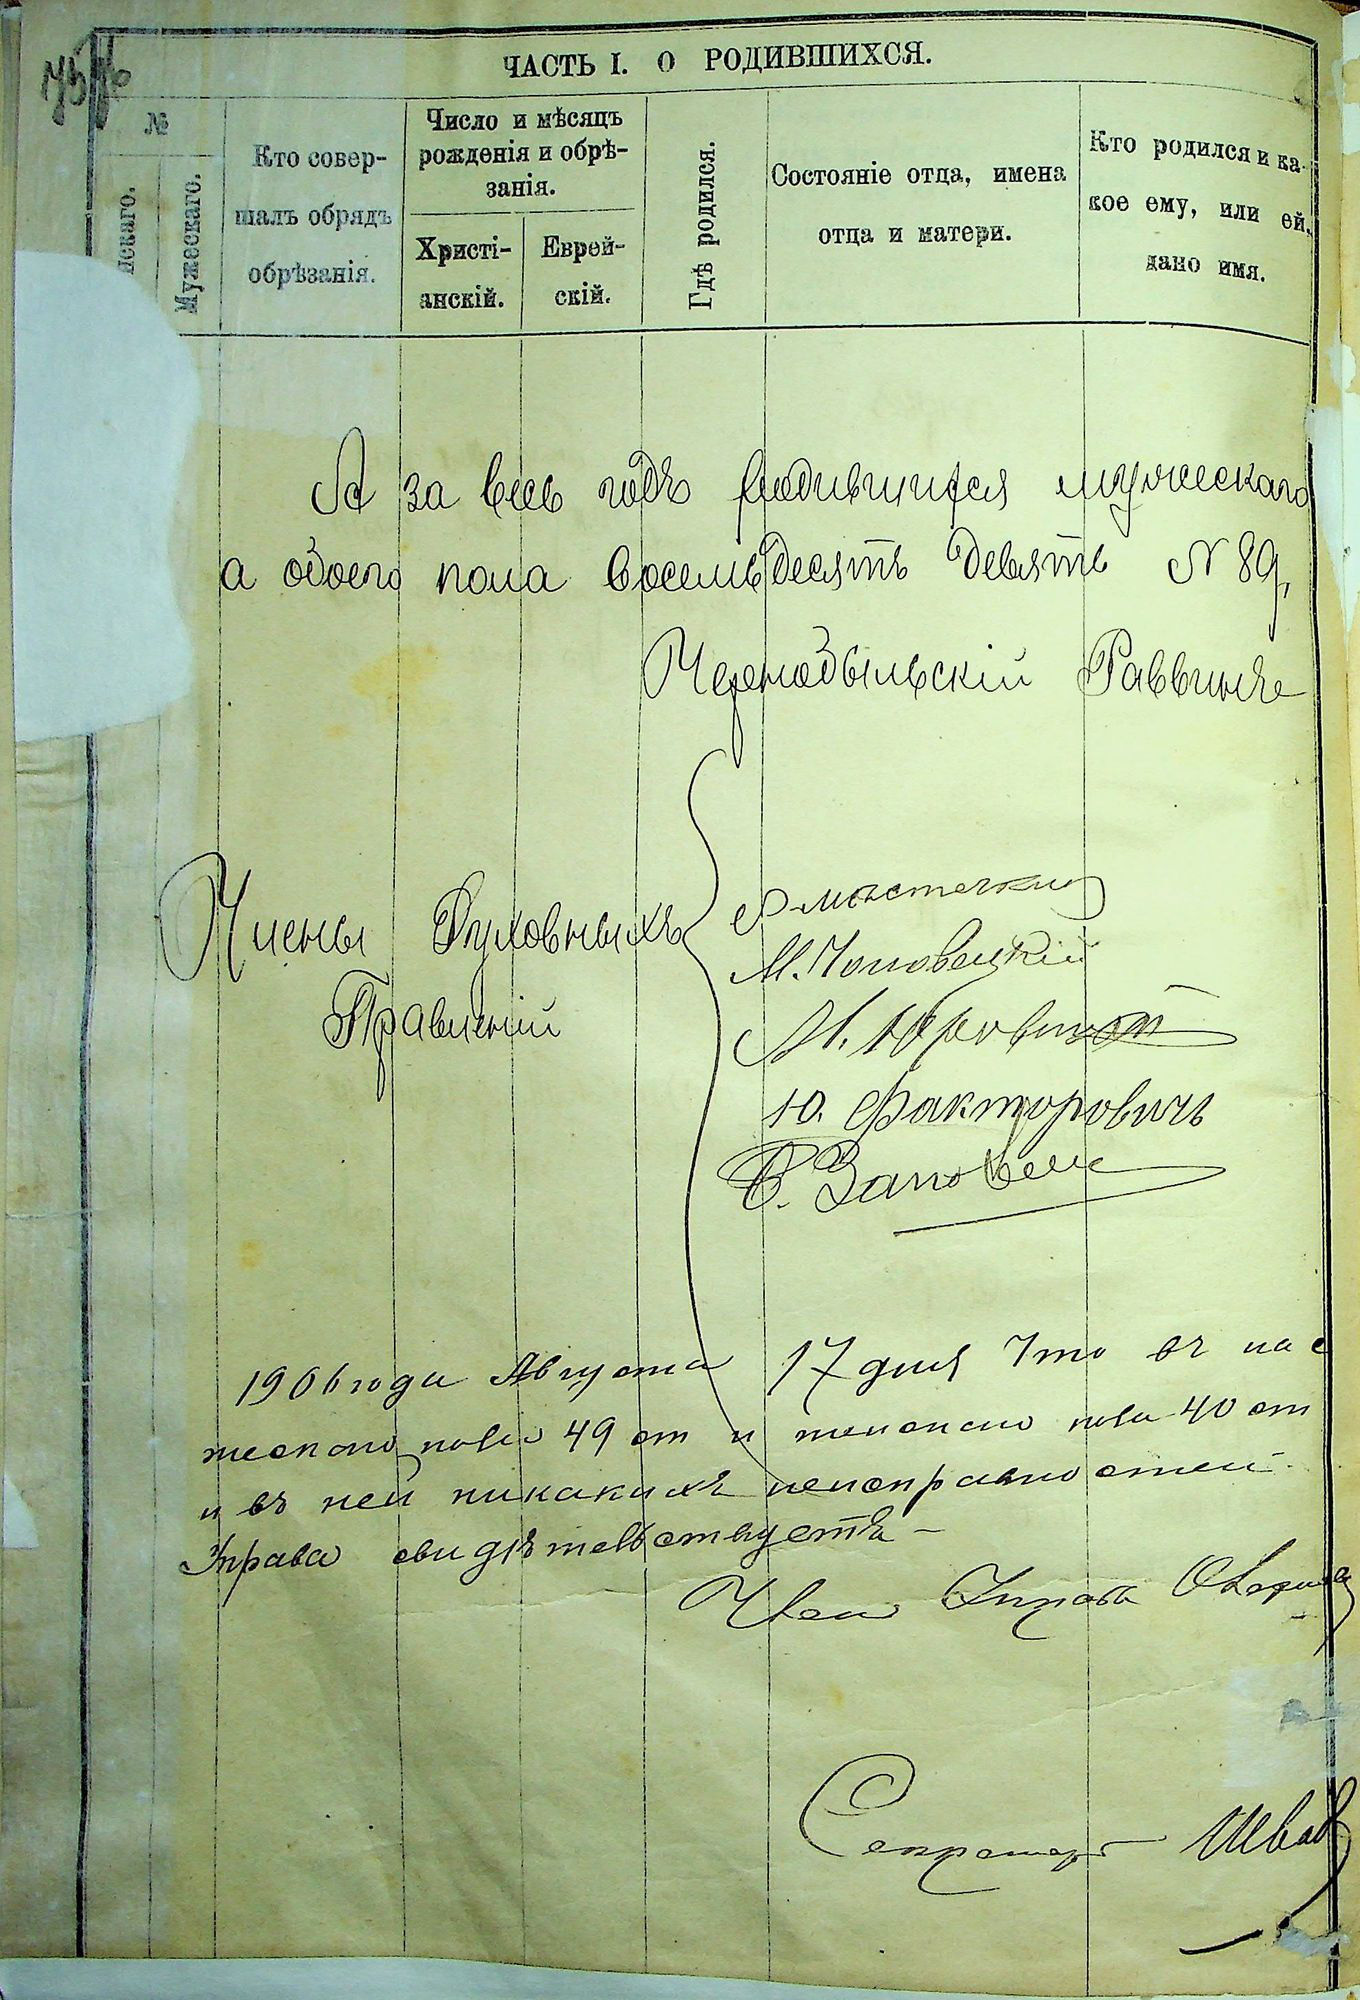 ЧАСТЬ I. О РОДИВШИХСЯ.
№
нскаго.
Мужескаго.
Кто совер-
шалъ обрядъ
обрѣзанія.
Число и мѣсяцъ
рожденія и обрѣ-
занія.
Христі-
анскій.
Еврей-
скій.
Гдѣ родился.
Состояніе отца, имена
отца и матери.
Кто родился и ка-
кое ему, или ей,
дано имя.
А за весь годъ родившихся мужескаго
а обоего пола восемьдесятъ девять № 89,
Чернобыльскій Раввинъ
Члены Духовныхъ
Правленій
М.
М.
Ю. Факторовичъ
1906 года Августа 17 дня Что въ нас
жескаго пола 49 от и женскаго пола 40 от
и въ ней никакихъ неисправностей
Управа свидѣтельствуетъ –
Членъ Управы
Секретарь